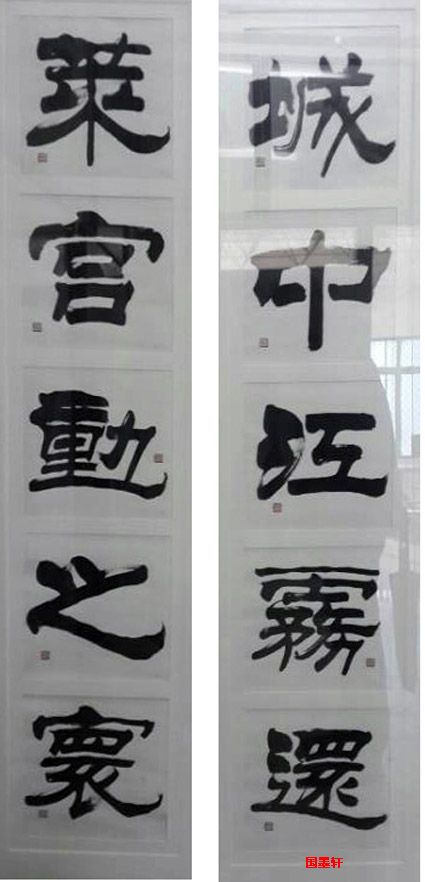 城中江霧還
萊宫動之寰
国墨轩